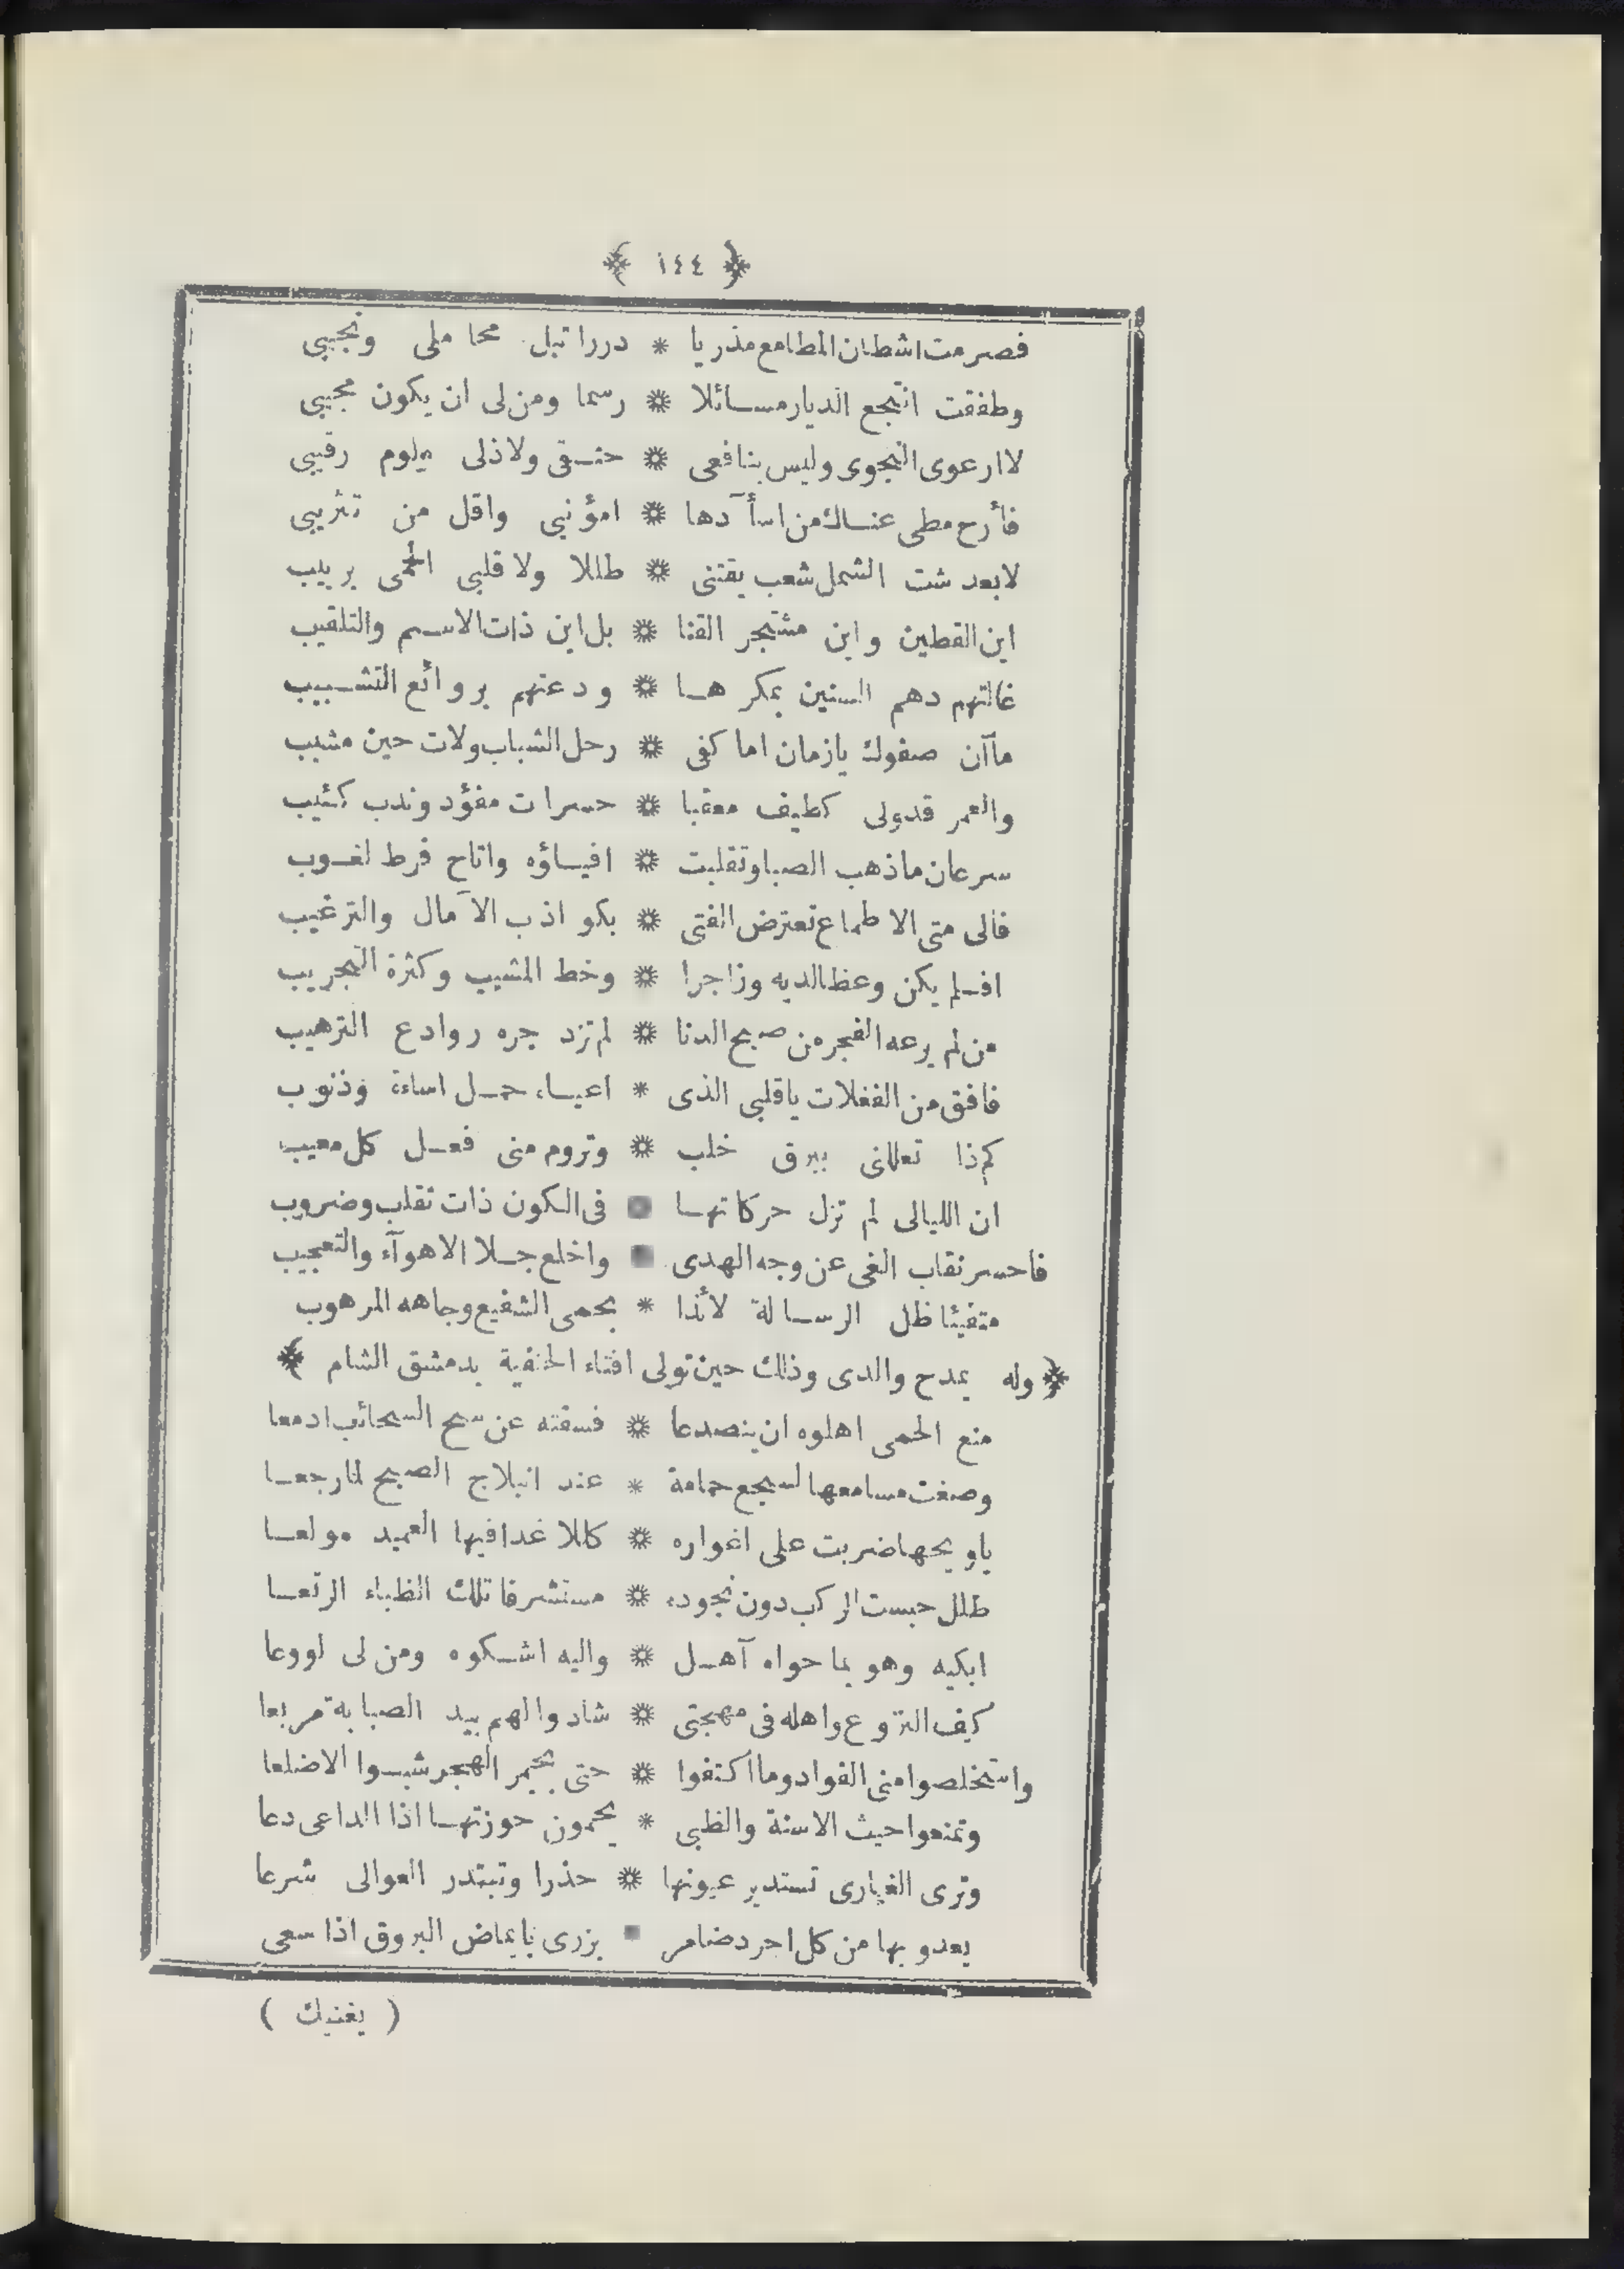 ﴿ ١٤٤ ﴾
فصرمت اشطان المطامع مذريا * دررا تبل محاملى ونجيبى
وطفقت انتجع الديار مسائلا * رسما ومن لى ان يكون مجيبى
لا ارعوى النجوى وليس بنافعى * حنقى ولا ذلى بلوم رقيبى
فأرح مطى عناك من اسأ آدها * امؤنبى واقل من تثريبى
لا بعد شت الشمل شعب يقتنى * طللا ولا قلبى الحمى بربيب
اين القطين واين مشتجر القنا * بل اين ذات الاسم والتلقيب
غالتهم دهم السنين بمكرها * ودعتهم بروائع التشبيب
ماآن صفوك يازمان اما كفى * رحل الشباب ولات حين مشيب
والعمر قدولى كطيف معقبا * حسرات مفؤد وندب كئيب
سرعان ماذهب الصبا وتقلبت * افياؤه واتاح فرط لغوب
فالى متى الاطماع تعترض الفتى * بكواذب الآمال والترغيب
افلم يكن وعظالديه وزاجرا * وخط المشيب وكثرة التجريب
من لم يرعه الفجر من صبح الدنا * لم تزدجره روادع الترهيب
فافق من الغفلات ياقلبى الذى * اعياه حمل اساءة وذنوب
كم ذا تعللنى ببرق خلب * وتروم منى فعل كل معيب
ان الليالى لم تزل حركاتها * فى الكون ذات تقلب وضروب
فاحسر نقاب الغى عن وجه الهدى * واخلع جلا الاهوآء والتعجيب
متفيئا ظل الرسالة لائذا * بحمى الشفيع وجاهه المرهوب
﴿ وله يمدح والدى وذلك حين تولى افتاء الحنفية بدمشق الشام ﴾
منع الحمى اهلوه ان يتصدعا * فسقته عن سح السحائب ادمعا
وصغت مسامعها لسجع حمامة * عند انبلاج الصبح لما رجعا
ياويحها ضربت على اغواره * كللا غدا فيها العميد مولعا
طلل حبست الركب دون نجوده * مستشرفا تلك الظباء الرتعا
ابكيه وهو بما حواه آهل * واليه اشكوه ومن لى لووعا
كيف النزوع واهله فى مهجتى * شادوا لهم بيد الصبابة مربعا
واستخلصوا منى الفواد وما اكتفوا * حتى بجمر الهجر شبوا الاضلعا
وتمنعوا حيث الاسنة والظبى * يحمون حوزتها اذا الداعى دعا
وترى الغيارى تستدير عيونها * حذرا وتبتدر العوالى شرعا
يعدو بها من كل اجرد ضامر * يزرى بايماض البروق اذا سعى
( يغنيك )